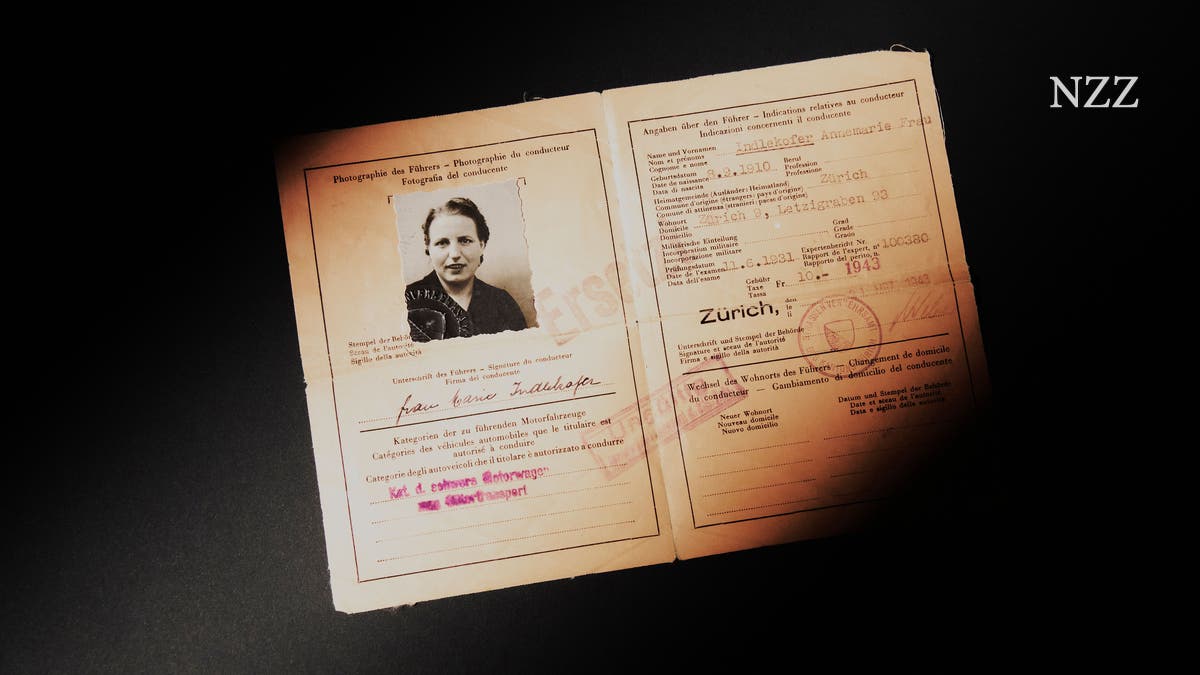 NZZ
Photographie des Führers – Photographie du conducteur
Fotografia del conducente
Stempel der Behö
Sceau de l'autorité
Sigillo della autorità
Unterschrift des Führers – Signature du conducteur
Firma del conducente
frau Marie Indlekofer
Kategorien der zu führenden Motorfahrzeuge
Catégories des véhicules automobiles que le titulaire est
autorisé à conduire
Categorie degli autoveicoli che il titolare è autorizzato a condurre
Kat. d. schwere Motorwagen
zum Gütertransport
Angaben über den Führer – Indications relatives au conducteur
Indicazioni concernenti il conducente
Name und Vornamen
Nom et prénoms
Cognome e nome
Indlekofer Annemarie Frau
Geburtsdatum
Date de naissance
Data di nascita
8.9.1910
Beruf
Profession
Professione
Heimatgemeinde (Ausländer: Heimatland)
Commune d'origine (étrangers: pays d'origine)
Comune di attinenza (stranieri: paese d'origine)
Zürich
Wohnort
Domicile
Domicilio
Zürich 9, Letzigraben 93
Militärische Einteilung
Incorporation militaire
Incorporazione militare
Grad
Grade
Grado
Prüfungsdatum
Date de l'examen
Data dell'esame
11.6.1931
Expertenbericht Nr.
Rapport de l'expert, n°
Rapporto del perito, n.
100380
Gebühr
Taxe
Tassa
Fr.
10.-
1943
Zürich,
den
le
li
1943
Unterschrift und Stempel der Behörde
Signature et sceau de l'autorité
Firma e sigillo della autorità
Wechsel des Wohnorts des Führers – Changement de domicile
du conducteur – Gambiamento di domicilio del conducente
Neuer Wohnort
Nouveau domicile
Nuovo domicilio
Datum und Stempel der Behörde
Date et sceau de l'autorité
Data e sigillo della autorità